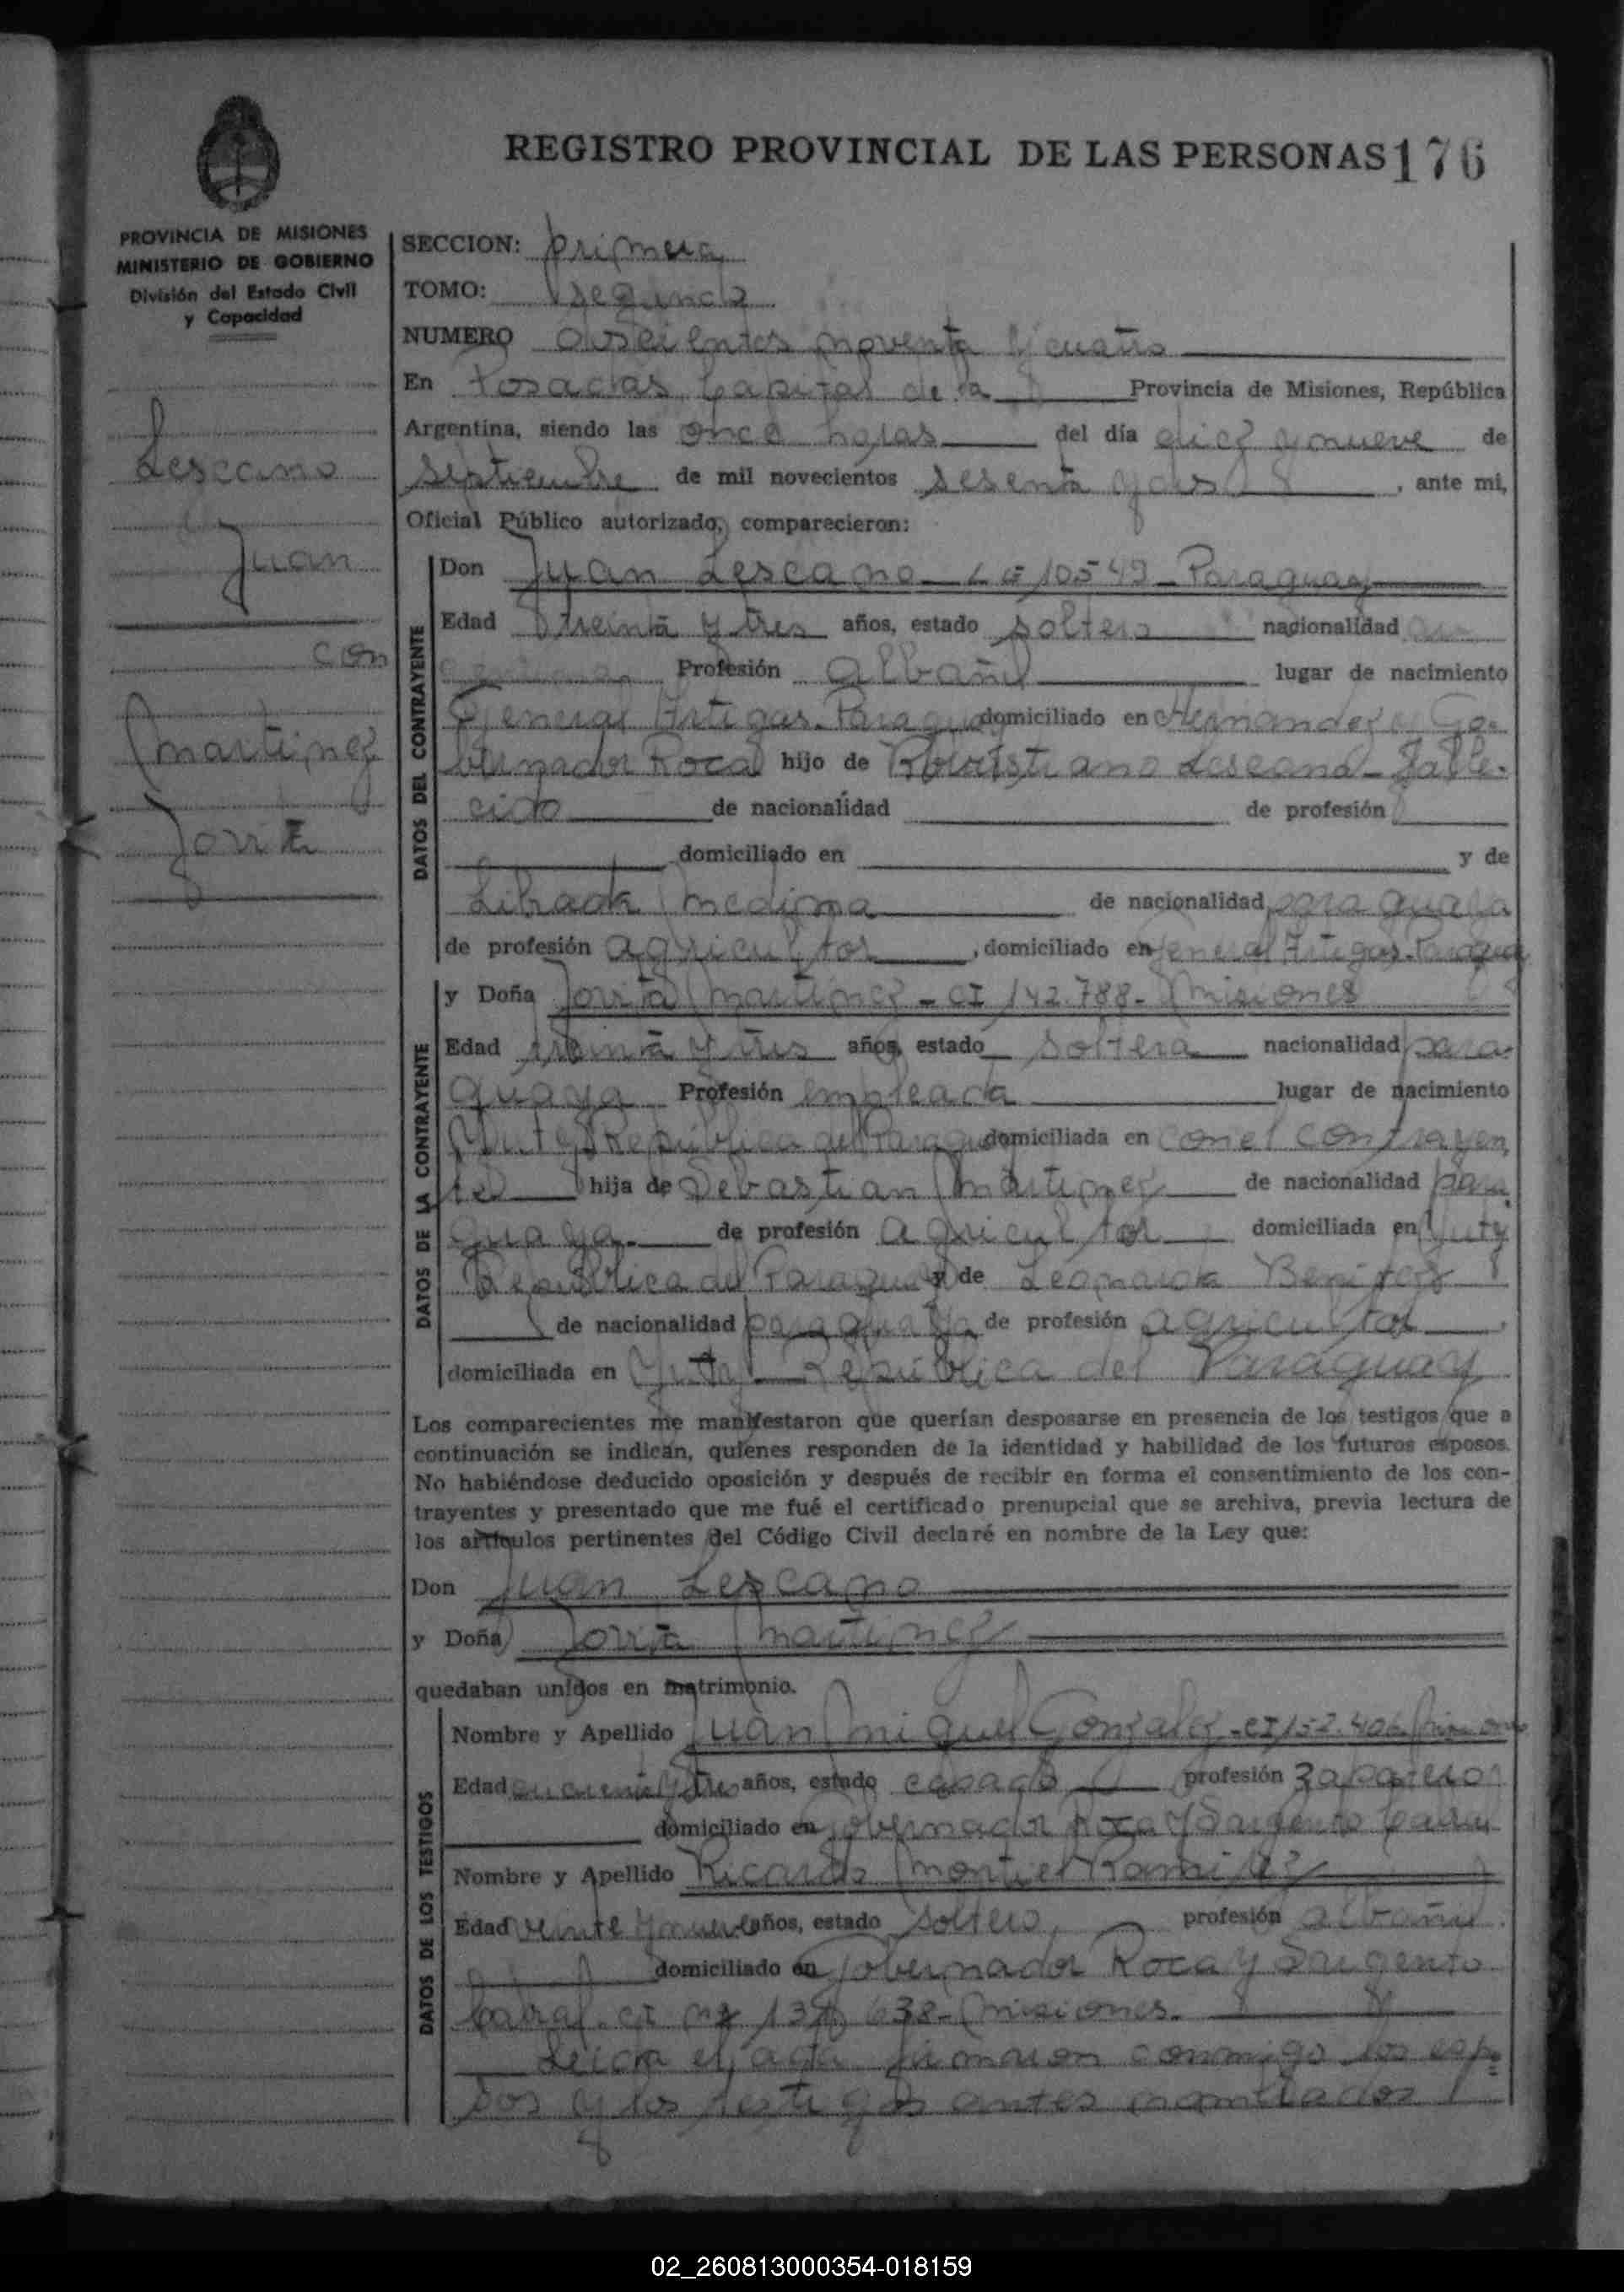 REGISTRO PROVINCIAL DE LAS PERSONAS 176
PROVINCIA DE MISIONES
MINISTERIO DE GOBIERNO
División del Estado Civil
y Capacidad
Lescano
Juan
con
Martinez
Jovita
SECCION: primera
TOMO: segundo
NUMERO doscientos noventa y cuatro
En Posadas, Capital de la Provincia de Misiones, República
Argentina, siendo las once horas del día diez y nueve de
septiembre de mil novecientos sesenta y dos, ante mi,
Oficial Público autorizado, comparecieron:
DATOS DEL CONTRAYENTE
Don Juan Lescano - 10549 - Paraguay
Edad treinta y tres años, estado soltero nacionalidad
Profesión albañil lugar de nacimiento
General Artigas. Paraguay domiciliado en Hernandez y Go-
bernador Roca hijo de Lescano - Falle-
cido de nacionalidad de profesión
domiciliado en y de
Librada Medina de nacionalidad paraguaya
de profesión agricultor, domiciliado en General Artigas. Paraguay
DATOS DE LA CONTRAYENTE
y Doña Jovita Martinez - CI 142.788 - Misiones
Edad treinta y tres años, estado soltera nacionalidad para-
guaya Profesión empleada lugar de nacimiento
Yuty República del Paraguay domiciliada en con el contrayen
te hija de Sebastian Martinez de nacionalidad para
guaya. de profesión agricultor domiciliada en Yuty
República del Paraguay y de Leonarda Benitez
de nacionalidad paraguaya de profesión agricultor.
domiciliada en Yuty República del Paraguay
Los comparecientes me manifestaron que querían desposarse en presencia de los testigos que a
continuación se indican, quienes responden de la identidad y habilidad de los futuros esposos.
No habiéndose deducido oposición y después de recibir en forma el consentimiento de los con-
trayentes y presentado que me fué el certificado prenupcial que se archiva, previa lectura de
los artículos pertinentes del Código Civil declaré en nombre de la Ley que:
Don Juan Lescano
y Doña Jovita Martinez
quedaban unidos en matrimonio.
DATOS DE LOS TESTIGOS
Nombre y Apellido Juan Miguel Gonzalez - CI 157.406 Misiones
Edad cuarenta y tres años, estado casado profesión zapatero
domiciliado en Gobernador Roca y Sargento Cabral
Nombre y Apellido Ricardo Montiel Ramirez
Edad veinte y nueve años, estado soltero, profesión albañil
domiciliado en Gobernador Roca y Sargento
Cabral. CI 638 - Misiones.
Leida el acta firmaron conmigo los espo
sos y los testigos antes nombrados
02_260813000354-018159